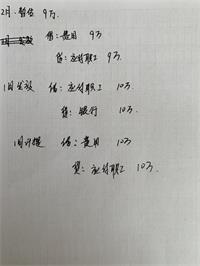 2月:暂估 9万.
借:费用 9万
贷:应付职工 9万.
1月发放 借:应付职工 10万
贷:银行 10万
1月计提 借:费用 10万
贷:应付职工 10万.